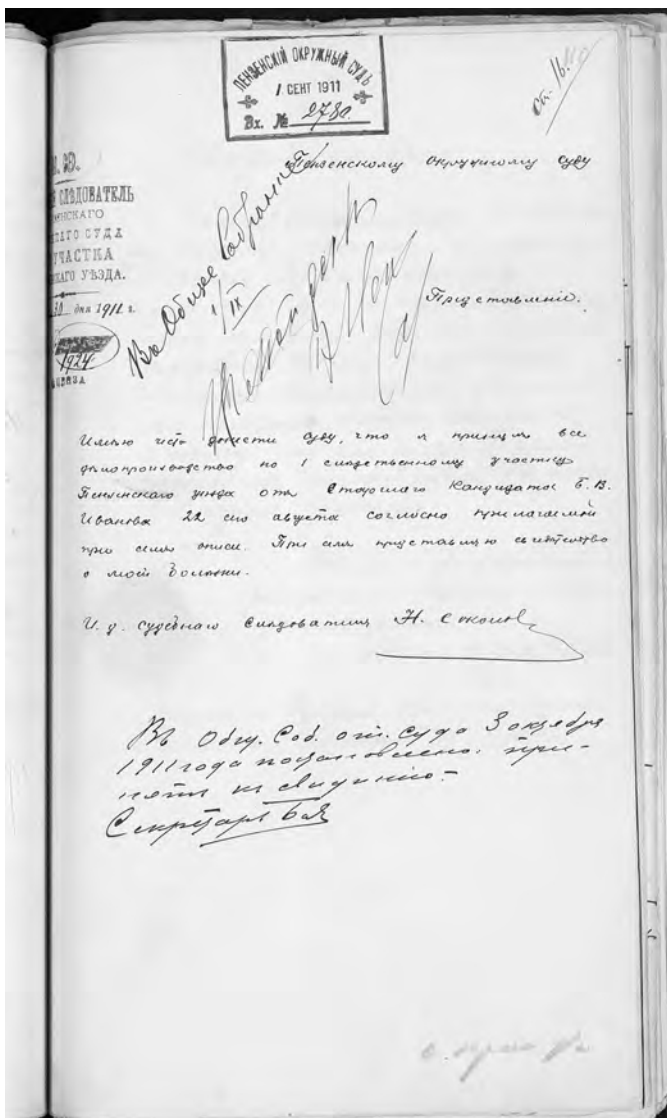 ПЕНЗЕНСКІЙ ОКРУЖНЫЙ СУДЪ
1 СЕНТ 1911
Вх. № 2780
Пензенскому Окружному Суду
СЛѢДОВАТЕЛЬ
СУДА
УЧАСТКА
УѢЗДА.
30 дня 1911 г.
1924
Въ Общее Собраніе
1/IX
Представленіе.
Имѣю честь донести Суду, что я принялъ все
дѣлопроизводство по 1 слѣдственному участку
Пензенскаго уѣзда отъ Старшаго Кандидата Б. В.
Иванова 22 сего августа согласно прилагаемой
при семъ описи. При семъ представляю свидѣтельство
о моей болѣзни.
И. д. Судебнаго Слѣдователя Н. Соколов
Въ Общ. Соб. отд. Суда 3 октября
1911 года постановлено: при-
нять къ свѣдѣнію.
Секретарь